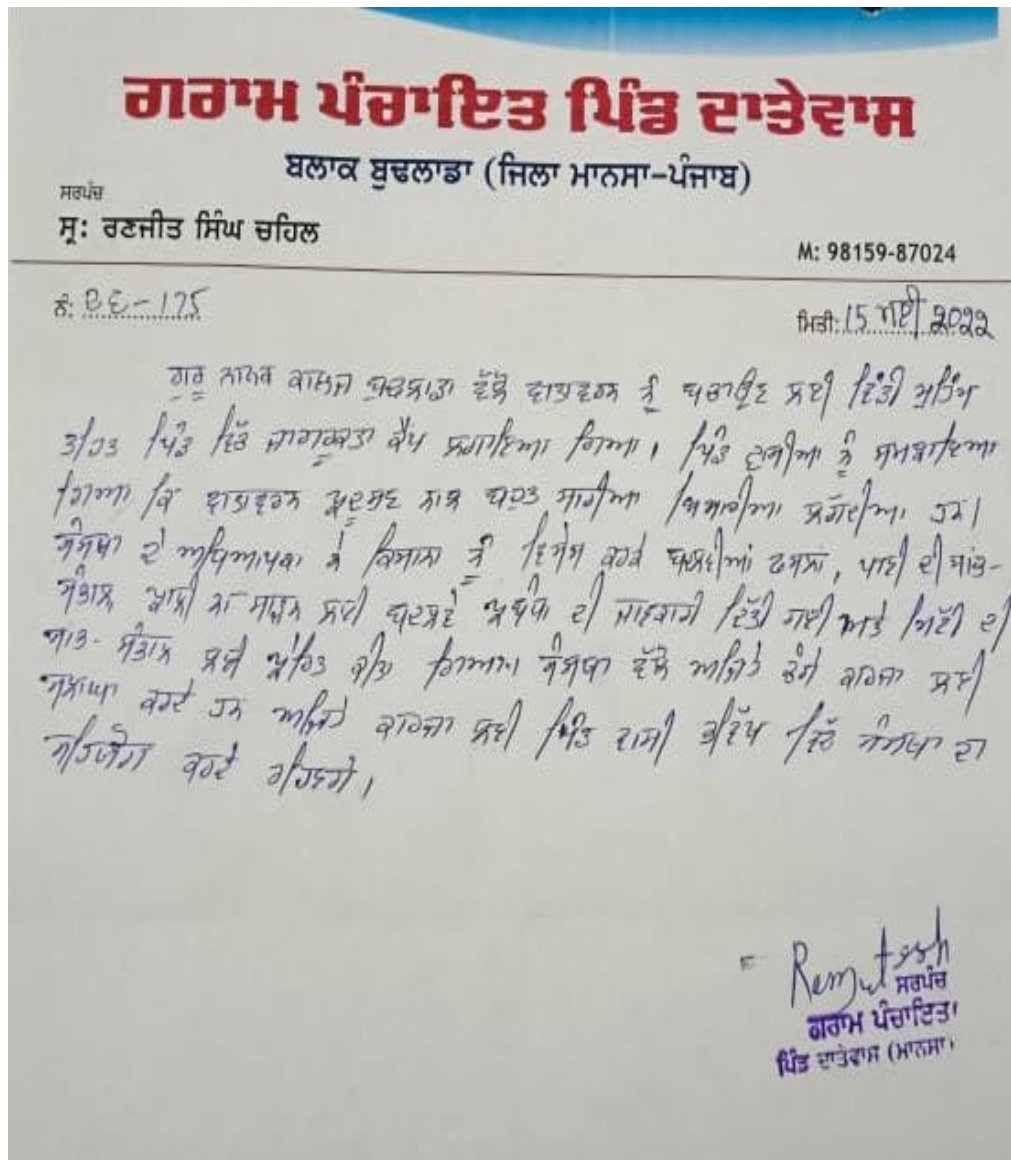 ਗਰਾਮ ਪੰਚਾਇਤ ਪਿੰਡ ਦਾਤੇਵਾਸ
ਬਲਾਕ ਬੁਢਲਾਡਾ (ਜਿਲਾ ਮਾਨਸਾ-ਪੰਜਾਬ)
ਸਰਪੰਚ
ਸ੍ਰ: ਰਣਜੀਤ ਸਿੰਘ ਚਹਿਲ
M: 98159-87024
ਨੰ:
ਮਿਤੀ: 15 ਮਈ 2022
ਗੁਰੂ ਨਾਨਕ ਕਾਲਜ ਬੁਢਲਾਡਾ ਵੱਲੋਂ ਵਾਤਾਵਰਨ ਨੂੰ ਬਚਾਉਣ ਲਈ ਵਿੱਢੀ ਮੁਹਿੰਮ
ਤਹਿਤ ਪਿੰਡ ਵਿੱਚ ਜਾਗਰੂਕਤਾ ਕੈਂਪ ਲਗਾਇਆ ਗਿਆ। ਪਿੰਡ ਵਾਸੀਆ ਨੂੰ ਸਮਝਾਇਆ
ਗਿਆ ਕਿ ਵਾਤਾਵਰਨ ਪ੍ਰਦੂਸ਼ਣ ਨਾਲ ਬਹੁਤ ਸਾਰੀਆ ਬਿਮਾਰੀਆ ਲੱਗਦੀਆ ਹਨ।
ਸੰਸਥਾ ਦੇ ਅਧਿਆਪਕਾ ਨੇ ਕਿਸਾਨਾ ਨੂੰ ਵਿਸੇਸ ਕਰਕੇ ਫਸਲਾਂ, ਪਾਣੀ ਦੀ ਸਾਂਭ-
ਸੰਭਾਲ ਪਰਾਲੀ ਨਾ ਲਈ ਪ੍ਰਬੰਧਾ ਦੀ ਜਾਣਕਾਰੀ ਦਿੱਤੀ ਗਈ ਅਤੇ ਮਿੱਟੀ ਦੀ
ਸਾਭ-ਸੰਭਾਲ ਲਈ ਪ੍ਰੇਰਿਤ ਕੀਤਾ ਗਿਆ। ਸੰਸਥਾ ਵੱਲੋ ਅਜਿਹੇ ਚੰਗੇ ਕਾਰਜਾ ਲਈ
ਸ਼ਲਾਘਾ ਕਰਦੇ ਹਨ ਅਜਿਹੇ ਕਾਰਜਾ ਲਈ ਪਿੰਡ ਵਾਸੀ ਭਵਿੱਖ ਵਿੱਚ ਸੰਸਥਾ ਦਾ
ਸਹਿਯੋਗ ਕਰਦੇ ਰਹਿਣਗੇ।
ਸਰਪੰਚ
ਗਰਾਮ ਪੰਚਾਇਤ
ਪਿੰਡ ਦਾਤੇਵਾਸ (ਮਾਨਸਾ)